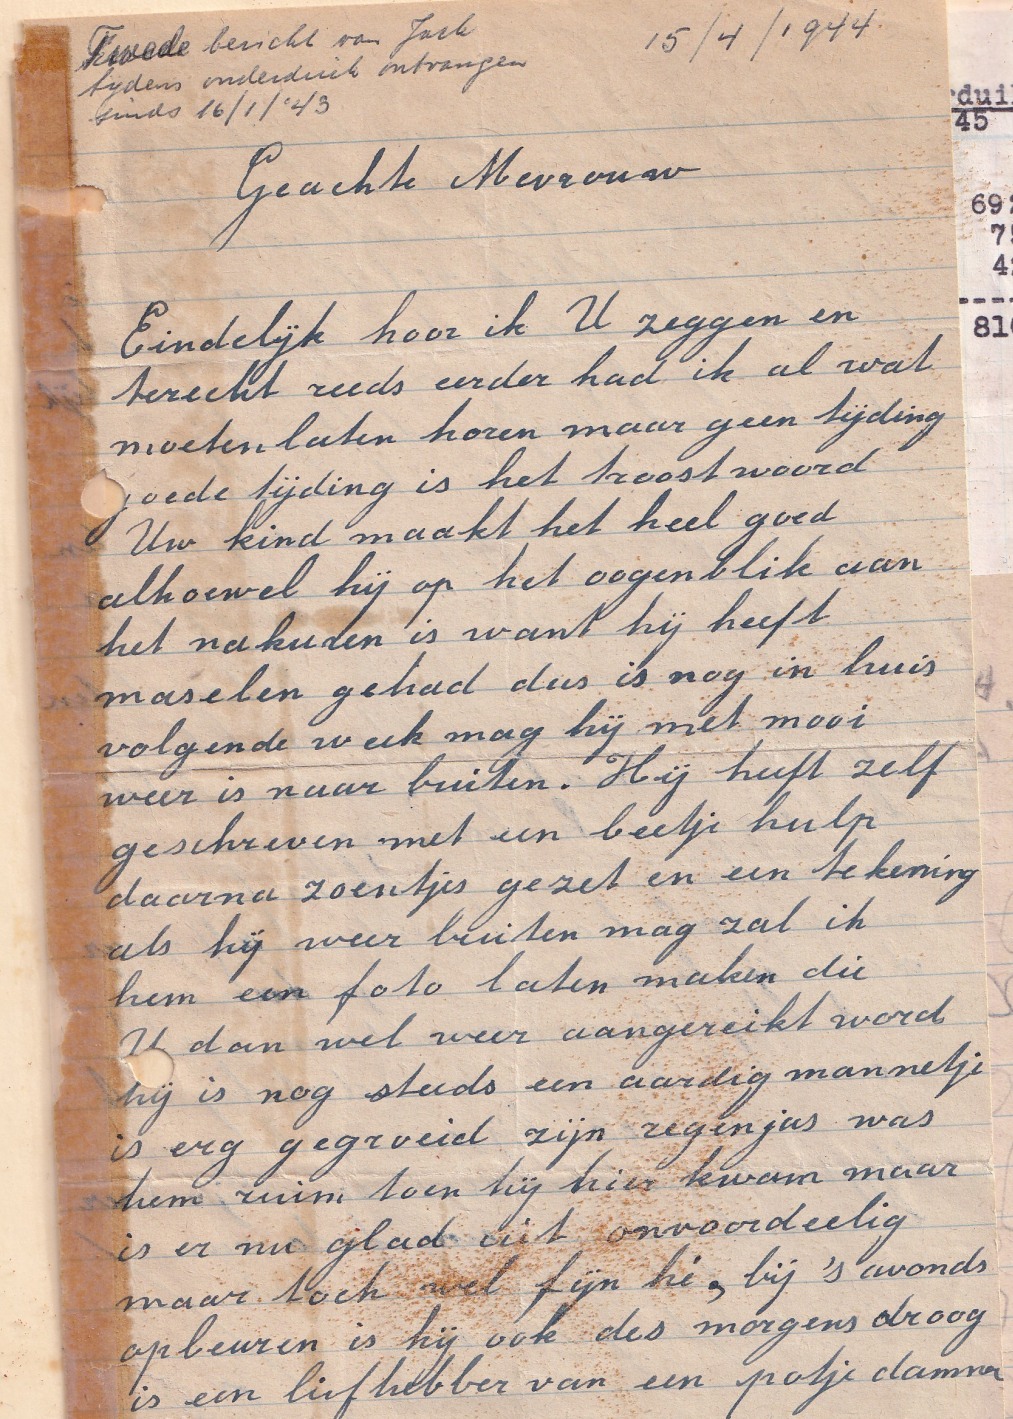 Twede bericht van Jack
tydens onderduik ontvangen
sinds 16/1/'43
15/4/1944.
Geachte Mevrouw
Eindelijk hoor ik U zeggen en
terecht reeds eerder had ik al wat
moeten laten horen maar geen tijding
goede tijding is het troostwoord
Uw kind maakt het heel goed
alhoewel hij op het oogenblik aan
het nakuren is want hij heeft
maselen gehad dus is nog in huis
volgende week mag hij met mooi
weer is naar buiten. Hij heeft zelf
geschreven met een beetje hulp
daarna zoentjes gezet en een tekening
als hij weer buiten mag zal ik
hem een foto laten maken die
U dan wel weer aangereikt word
hij is nog steeds een aardig mannetje
is erg gegroeid zijn regenjas was
hem ruim toen hij hier kwam maar
is er nu glad uit onvoordeelig
maar toch wel fijn hé, bij 's avonds
opbeuren is hij ook des morgens droog
is een liefhebber van een potje dammen
45
692
75
42
----
810